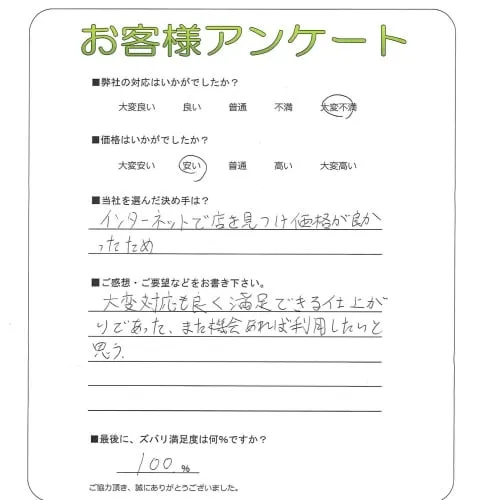 お客様アンケート
■弊社の対応はいかがでしたか？
大変良い 良い 普通 不満 大変不満
■価格はいかがでしたか？
大変安い 安い 普通 高い 大変高い
■当社を選んだ決め手は？
インターネットで店を見つけ価格が良か
ったため
■ご感想・ご要望などをお書き下さい。
大変対応も良く満足できる仕上が
りであった、また機会あれば利用したいと
思う.
■最後に、ズバリ満足度は何%ですか？
100 %
ご協力頂き、誠にありがとうございました。